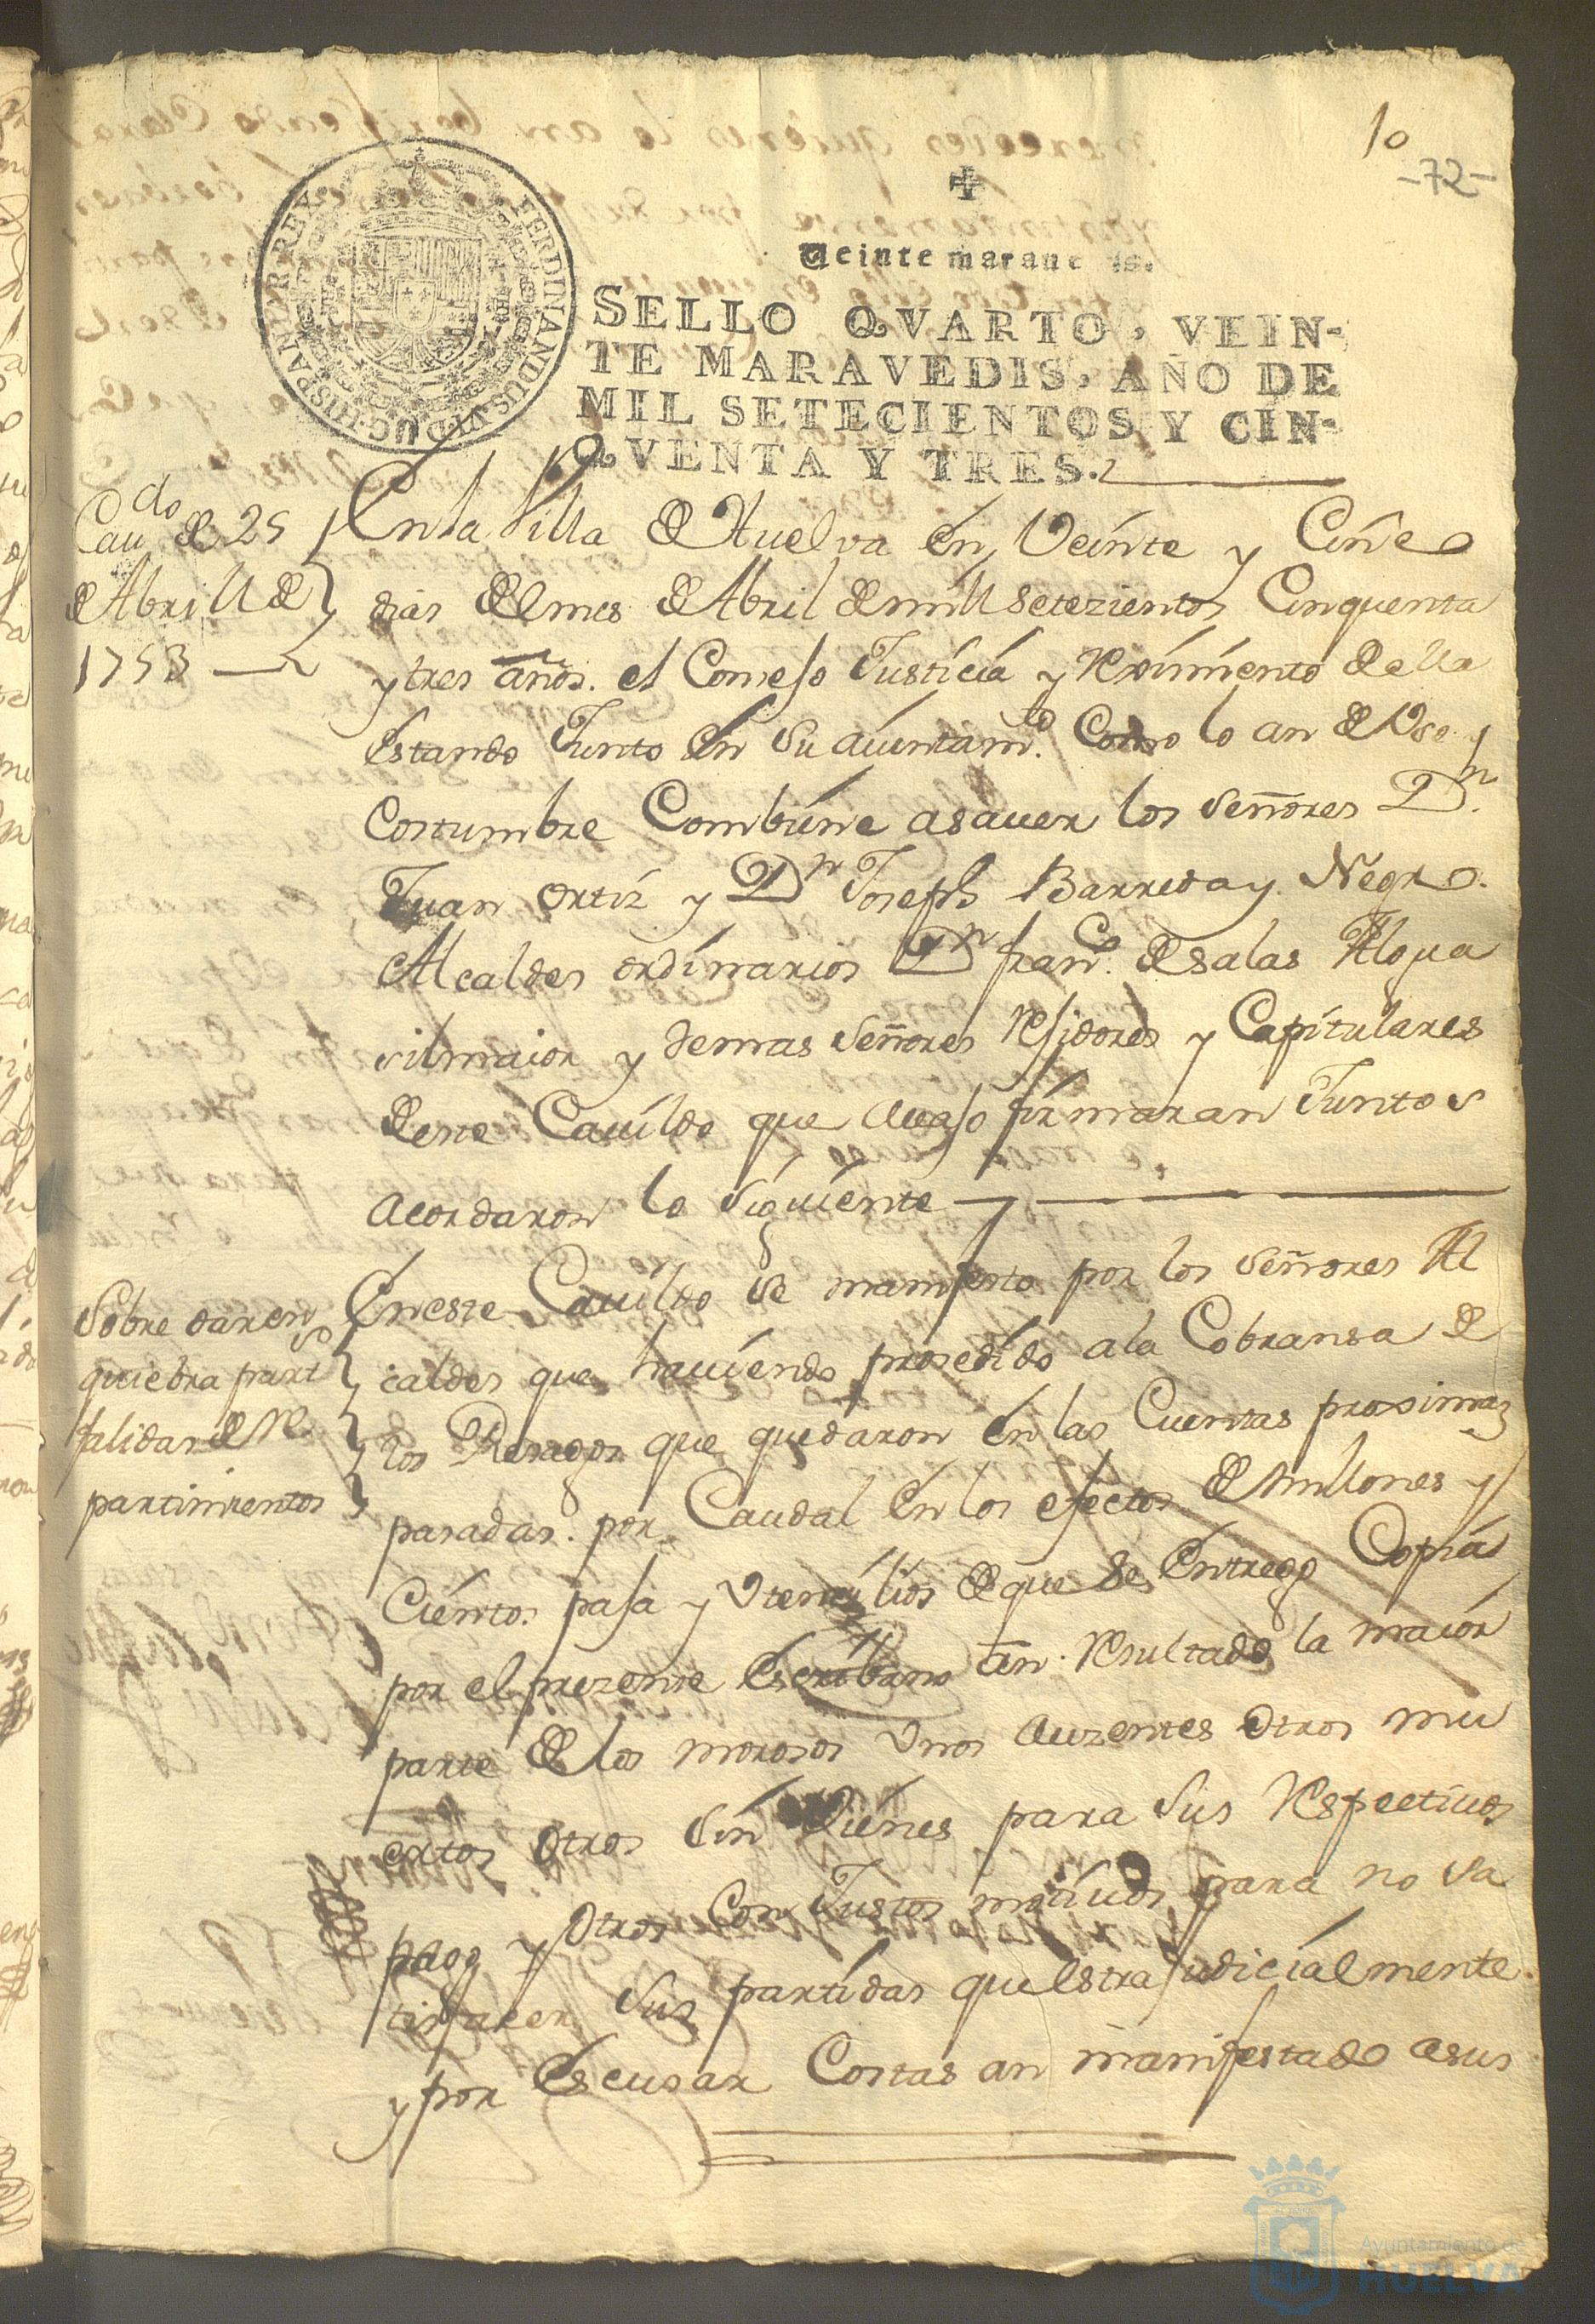 10
-72-
Veinte maraue is.
FERDINANDUS.VI.D.G.HISPANIAR.REX
SELLO QVARTO, VEIN-
TE MARAVEDIS, AÑO DE
MIL SETECIENTOS Y CIN-
QVENTA Y TRES.
Cau.do de 25
de Abrill de
1753
En la Villa de Huelva en Veinte y Cinco
dias del mes de Abril de mill setezientos Cinquenta
y tres años. el Consejo Justicia y Reximiento de ella
estando Junto en su aiuntam.to Como lo an de Vso y
Costumbre Combiene asauer los señores D.n
Juan ortiz y D.n Joseph Barreda y Negro.
Alcaldes ordinarios D.n fran.co de salas Algua
silmaior y demas señores Rejidores y Capitulares
de este Cauildo que auajo firmaran Juntos
acordaron lo siguiente
Sobre dar en
quiebra part.s
falidas de Re
partimientos
En este Cauildo se manifesto por los señores Al
caldes que hauiendo prosedido a la Cobransa de
los Resagos que quedaron en las Cuentas proximas
pasadas. por Caudal en los efectos de millones y
Cientos paja y Vtensilios de que se entrego Copia
por el prezente Escribano an Resultado la maior
parte de los morosos Vnos Auzentes otros mu
ertos otros sin Vienes para sus Respectiuos
pagos y otros Con Justos motiuos para no sa
tisfacer sus partidas que estrajudicialmente
y por Escusar Costas an manifestado a sus
Ayuntamiento de
HUELVA